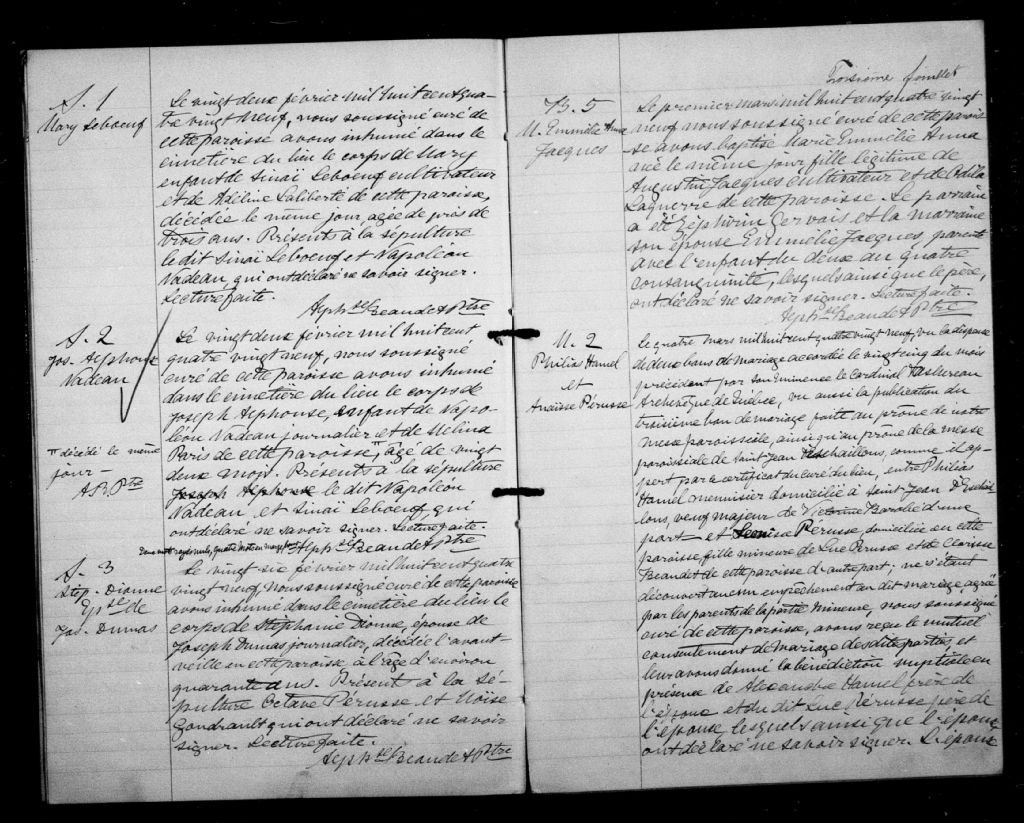 S. 1
Mary Leboeuf
Le vingt deux février mil huit cent qua-
tre vingt neuf, nous soussigné curé de
cette paroisse avons inhumé dans le
cimetière du lieu le corps de Mary
enfant de Sinai Leboeuf cultivateur
et de Adéline Laliberté de cette paroisse,
décédée le même jour, agée de près de
trois ans. Présents à la sépulture
le dit Sinai Leboeuf et Napoléon
Nadeau, qui ont déclaré ne savoir signer.
Lecture faite.
Alph.se Beaudet Ptre
S. 2
Jos. Alphonse
Nadeau
"décédé le même
jour -
A B. Ptre
Le vingt deux février mil huit cent
quatre vingt neuf, nous soussigné
curé de cette paroisse avons inhumé
dans le cimetière du lieu le corps de
Joseph Alphonse, enfant de Napo-
léon Nadeau journalier et de Mélina
Paris de cette paroisse," âgé de vingt
deux mois. Présents à la sépulture
Joseph Alphonse le dit Napoléon
Nadeau, et Sinai Leboeuf, qui
ont déclaré ne savoir signer. Lecture faite.
Deux mots rayés nuls, quatre mots en marge bons
Alph.se Beaudet Ptre
S. 3
Step. Dionne
Epse de
Jos. Dumas
Le vingt six février mil huit cent quatre
vingt neuf, Nous soussigné curé de cette paroisse
avons inhumé dans le cimetière du lieu le
corps de Stephanie Dionne, épouse de
Joseph Dumas journalier, décédée l'avant
veille en cette paroisse à l'âge d'environ
quarante ans. Présent à la sé-
pulture Octave Pérusse et Moïse
Gaudrault qui ont déclaré ne savoir
signer. Lecture faite.
Alph.se Beaudet Ptre
Troisième feuillet
B. 5
M. Emmélie Anna
Jacques
Le premier mars mil huit cent quatre vingt
neuf nous soussigné curé de cette parois
se avons baptisé Marie Emmélie Anna
née le même jour fille légitime de
Augustin Jacques cultivateur et de
Laguerre de cette paroisse. Le parrain
a été Zéphirin Gervais et la marraine
son épouse Emmélie Jacques, parente
avec l'enfant du deux au quatre
consanguinité, lesquels ainsi que le père,
ont déclaré ne savoir signer. Lecture faite.
Alph.se Beaudet Ptre
M. 2
Philias Hamel
et
Anaïsse Pérusse
Le quatre mars mil huit cent quatre vingt neuf, vu la dispense
de deux bans de mariage accordée le vingt cinq du mois
précédent par Son Eminence le Cardinal Taschereau
Archevêque de Québec, vu aussi la publication du
troisième ban de mariage faite au prône de notre
messe paroissiale, ainsi qu'au prône de la messe
paroissiale de Saint Jean Deschaillons, comme il ap-
pert par le certificat du curé du lieu, entre Philias
Hamel menuisier domicilié à Saint Jean D'Eschail
lons, veuf majeur de Victorine Barolle d'une
part et Pérusse, domiciliée en cette
paroisse, fille mineure de Luc Pérusse et de Clarisse
Beaudet de cette paroisse d'autre part; ne s'étant
découvert aucun empêchement au dit mariage, agréé
par les parents de la partie mineure, nous soussigné
curé de cette paroisse, avons reçu le mutuel
consentement de mariage des dites parties, et
leur avons donné la bénédiction nuptiale en
présence de Alexandre Hamel frère de
l'époux et du dit Luc Pérusse père de
l'épouse, lesquels ainsi que l'époux
ont déclaré ne savoir signer. L'épouse